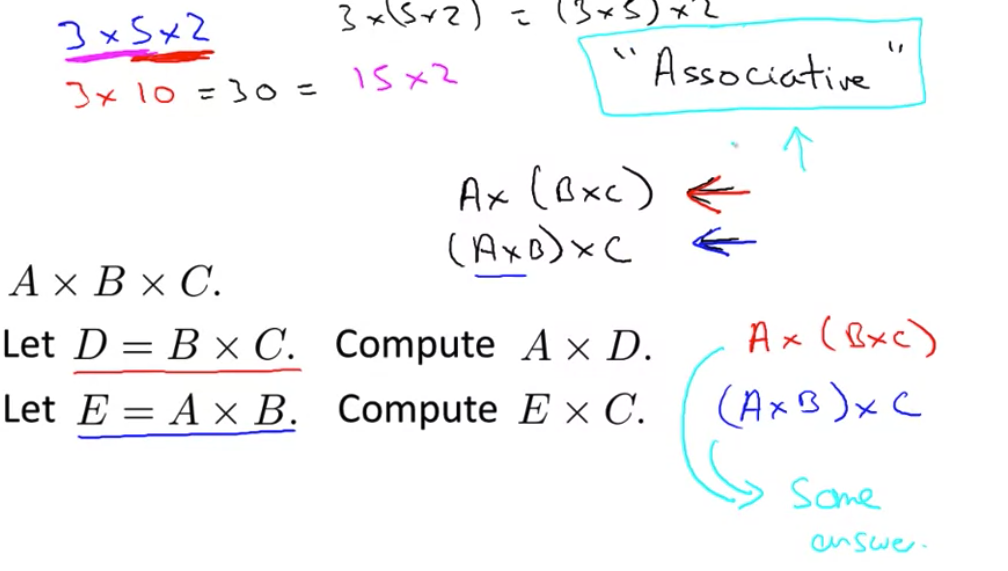 3 × 5 × 2
3 × (5 × 2) = (3 × 5) × 2
3 × 10 = 30 = 15 × 2
"Associative"
A × (B × C)
(A × B) × C
A × B × C.
Let D = B × C. Compute A × D.
A × (B × C)
Let E = A × B. Compute E × C.
(A × B) × C
Same
answer.